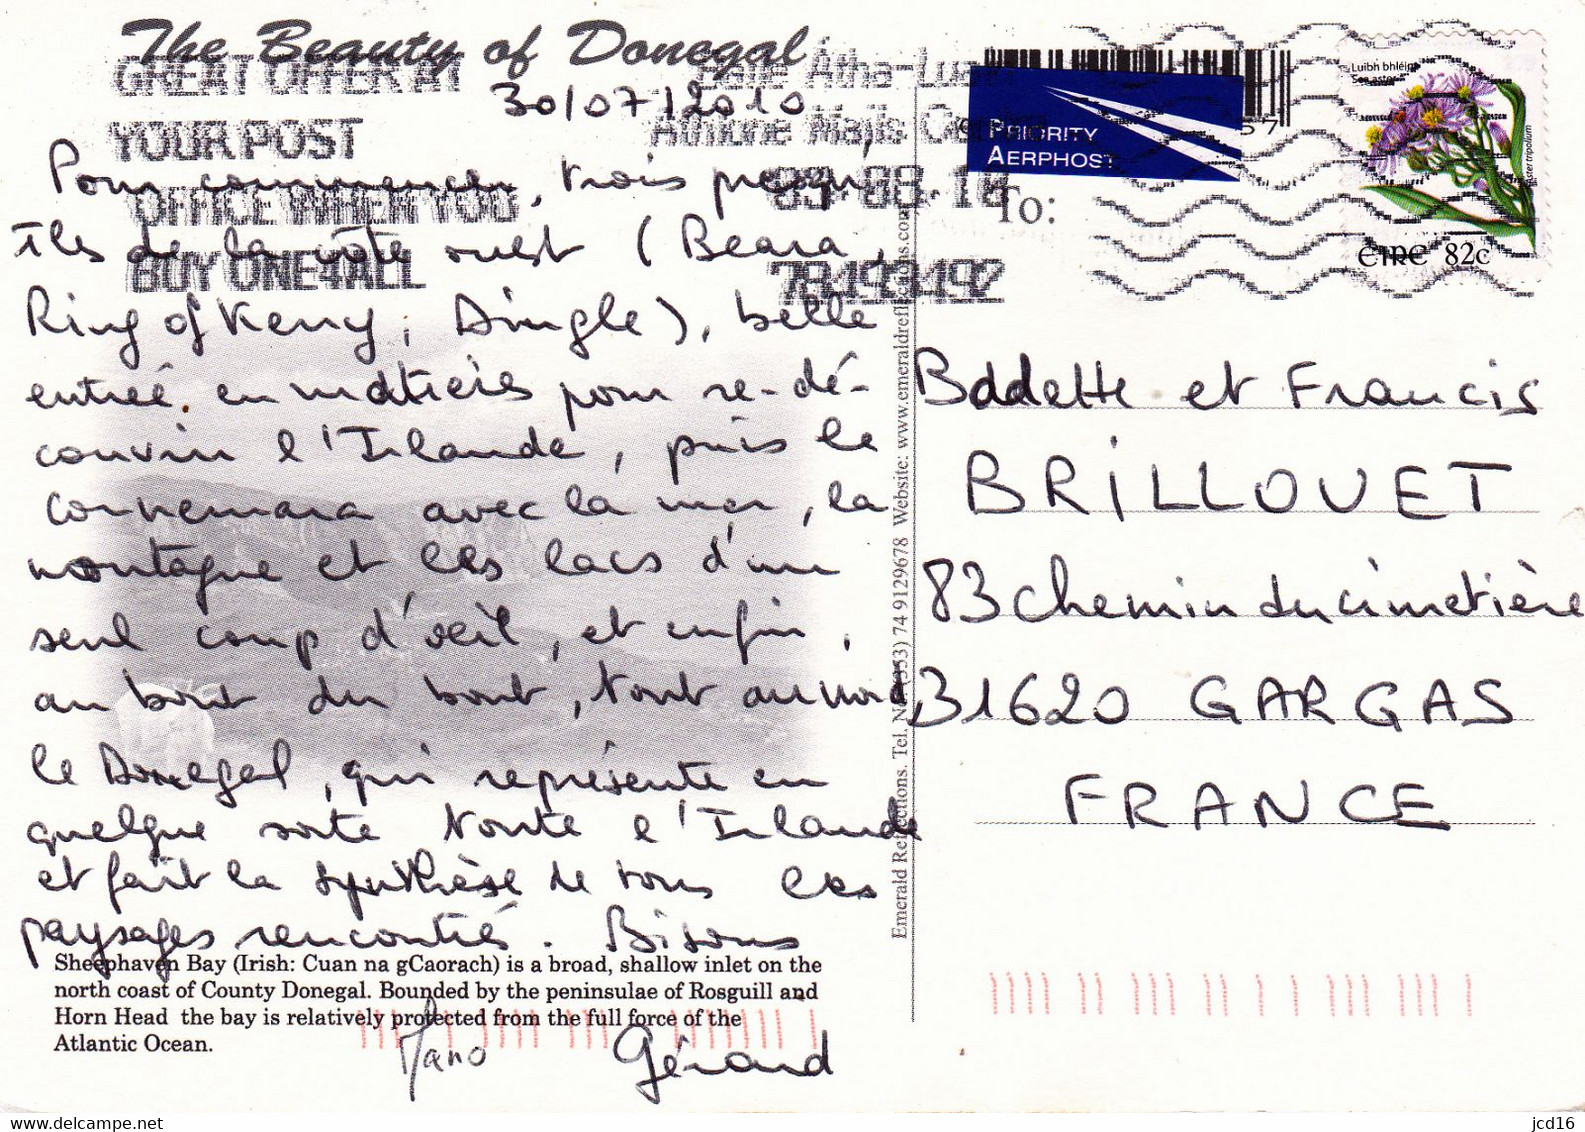 The Beauty of Donegal
GREAT OFFERS AT
YOUR POST
OFFICE WHEN YOU
BUY ONE4ALL
Baile Átha-Luain
Athlone Mails Centre
03-08-10
30/07/2010
Pour commencer, trois presqu'
îles de la côte ouest (Beara,
Ring of Kerry, Dingle), belle
entrée en matières pour re-dé-
couvrir l'Irlande, puis le
Connemara avec la mer, la
montagne et les lacs d'un
seul coup d'œil, et enfin,
au bout du bout, tout au nord
le Donegal, qui représente en
quelque sorte toute l'Irlande
et fait la synthèse de tous les
paysages rencontrés. Bisous
Mano Gérard
Sheephaven Bay (Irish: Cuan na gCaorach) is a broad, shallow inlet on the
north coast of County Donegal. Bounded by the peninsulae of Rosguill and
Horn Head the bay is relatively protected from the full force of the
Atlantic Ocean.
Emerald Reflections. Tel. No (353) 74 9129678 Website: www.emeraldreflections.com
PRIORITY
AERPHOST
To:
Luibh bhléine
Sea aster
Aster tripolium
ÉIRE 82c
Badette et Francis
BRILLOUET
83 chemin du cimetière
31620 GARGAS
FRANCE
delcampe.net
jcd16